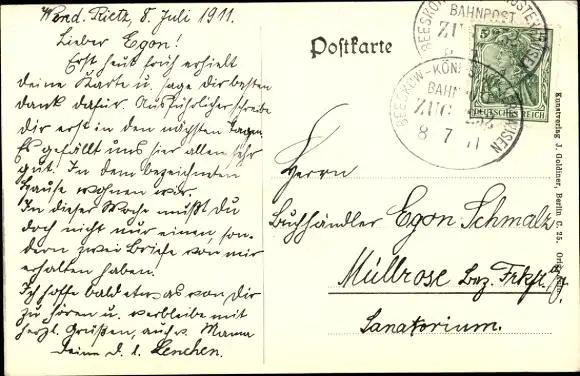 Wend. Rietz, 8. Juli 1911.
Lieber Egon!
Erst heut früh erhielt
deine Karte u. sage dir besten
dank dafür. Ausführlicher schreibe
dir erst in den nächsten Tagen.
Es gefällt uns hier allen sehr
gut. In dem bezeichneten
Hause wohnen wir.
In dieser Woche mußt Du
doch nicht nur einen, son-
dern zwei Briefe von mir
erhalten haben.
Ich hoffe bald etwas von Dir
zu hören u. verbleibe mit
herzl. Grüßen, auch v. Mama
Deine d. l. Lenchen.
Postkarte
BEESKOW
BAHNPOST
ZUG
BEESKOW-KÖNIGS
BAHN
ZUG
8 7 11
DEUTSCHES REICH
Herrn
Buchhändler Egon Schmalz
Müllrose Bez. Frkft. a/O.
Sanatorium.
Kunstverlag J. Goldiner, Berlin C. 45.